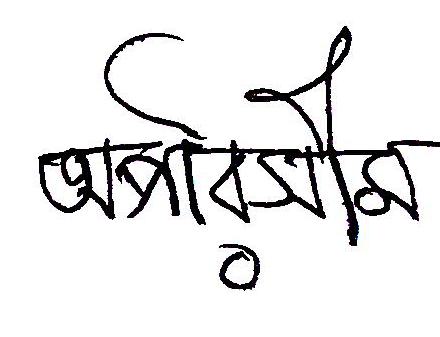 অপরিসীম